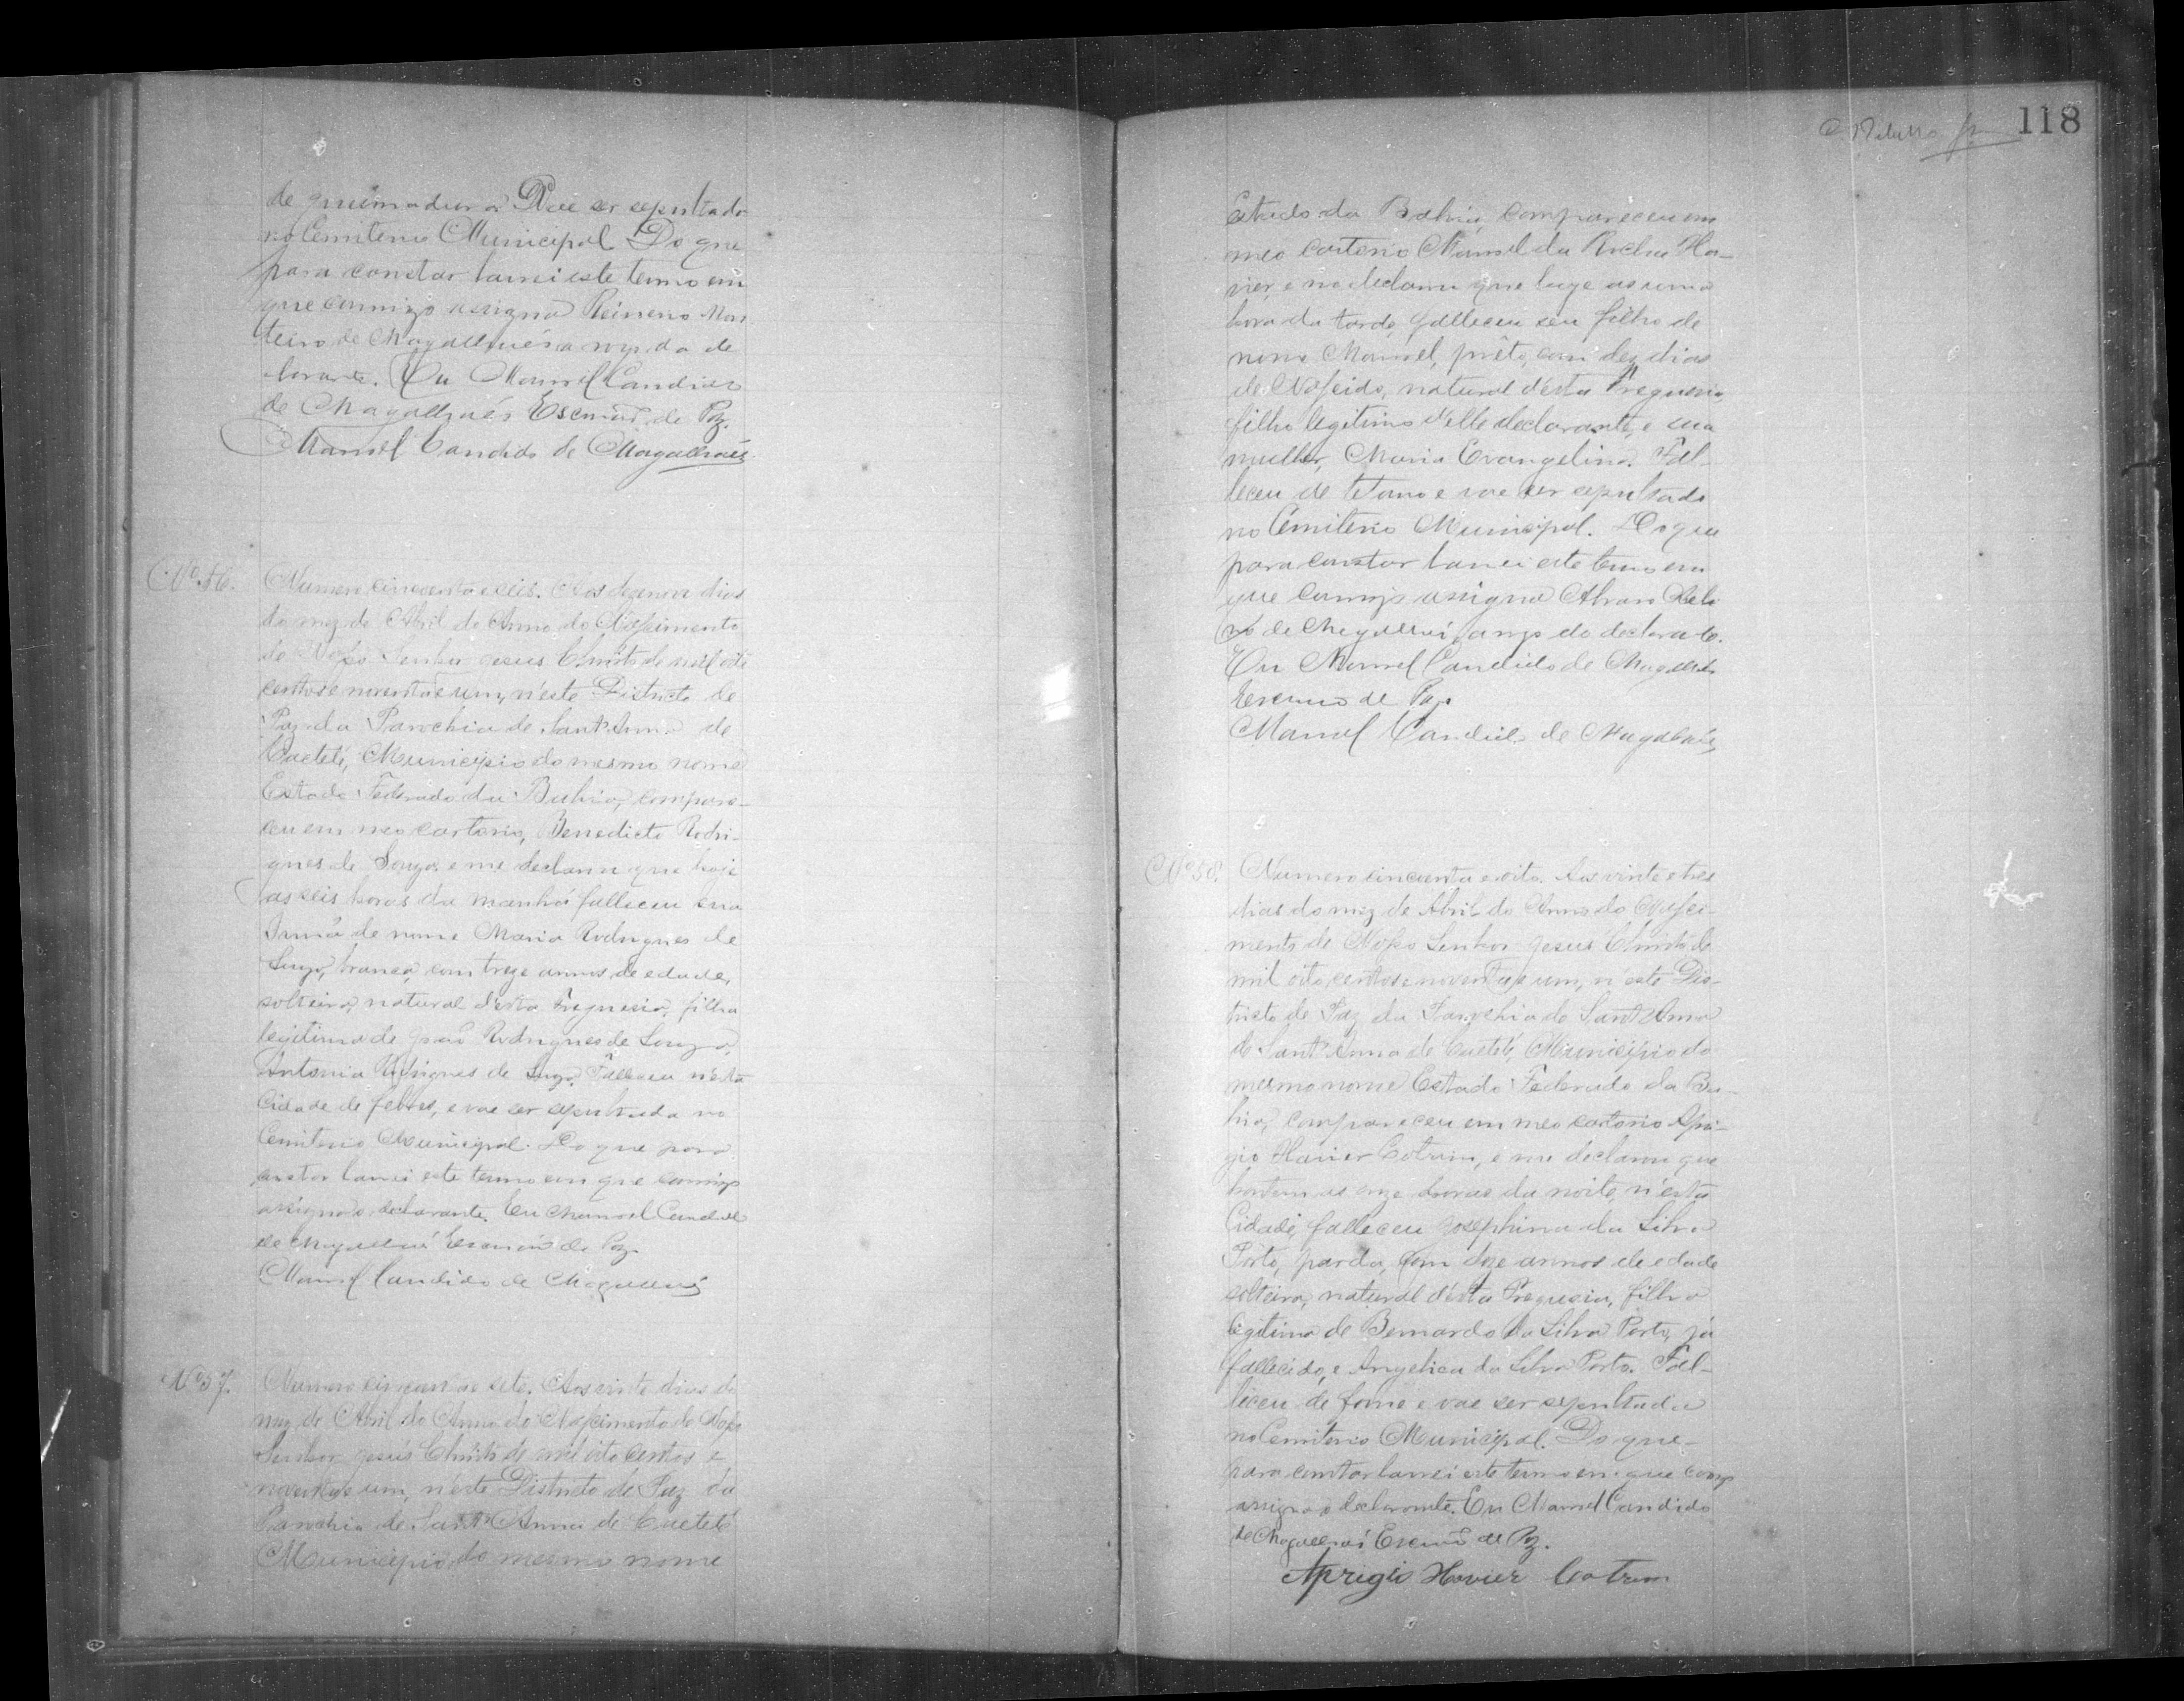 de queimadura Vae ser sepultado
no Cemiterio Municipal Do que
para constar lavrei este termo em
que commigo assigna Mon
teiro de Magalhães a rogo do de
clarante. Eu Manoel Candido
de Magalhães Escrivão de Paz.
Manoel Candido de Magalhães
Nº 56.
Numero cincoenta e seis. Aos dezenove dias
do mez de Abril do Anno do Nascimento
de Nosso Senhor Jesus Christo de mil oito
centos e noventa e um, n'este Districto de
Paz da Parochia de Sant'Anna de
Caeteté, Municipio do mesmo nome
Estado Federado da Bahia, compare-
ceu em meo cartorio, Benedicto Rodri-
gues de Souza e me declarou que hoje
as seis horas da manhã falleceu sua
Irmã de nome Maria Rodrigues de
Souza, branca, com treze annos de edade,
solteira, natural d'esta Freguesia, filha
legitima de João Rodrigues de Souza,
Antonia Rodrigues de Souza. Falleceu n'esta
Cidade de febres, e vae ser sepultada no
Cemiterio Municipal. Do que para
constar lavrei este termo em que commigo
assigna o declarante. Eu Manoel Candido
de Magalhães Escrivão de Paz.
Manoel Candido de Magalhães
Nº 57.
Numero cincoenta e sete. Aos vinte dias do
mez de Abril do Anno do Nascimento de Nosso
Senhor Jesus Christo de mil oito centos e
noventa e um, n'este Districto de Paz da
Parochia de Sant'Anna de Caeteté
Municipio do mesmo nome
118
Estado da Bahia, compareceu em
meo cartorio Manoel da Rocha Ha-
vier, e me declarou que hoje as uma
hora da tarde, falleceu seu filho de
nome Manoel, prêto, com dez dias
de Nascido, natural d'esta Freguesia,
filho legitimo d'elle declarante, e sua
mulher, Maria Evangelina. Fal-
leceu de tetano e vae ser sepultado
no Cemiterio Municipal. Do que
para constar lavrei este termo em
que commigo assigna Alvaro
de Magalhães, a rogo do declarante.
Eu Manoel Candido de Magalhães
Escrivão de Paz.
Manoel Candido de Magalhães
Nº 58.
Numero cincoenta e oito. Aos vinte e tres
dias do mez de Abril do Anno do Nasci-
mento de Nosso Senhor Jesus Christo de
mil oito centos e noventa e um, n'este Dis-
tricto de Paz da Parochia de Sant'Anna
de Sant'Anna de Caeteté, Municipio do
mesmo nome Estado Federado da Ba-
hia, compareceu em meo cartorio Apri-
gio Havier Cotrim, e me declarou que
hontem as onze horas da noite, n'esta
Cidade, falleceu Josephina da Silva
Porto, parda, com doze annos de edade
solteira, natural d'esta Freguesia, filha
legitima de Bernardo da Silva Porto, já
fallecido, e Angelica da Silva Porto. Fal-
leceu de fome e vae ser sepultada
no Cemiterio Municipal. Do que
para constar lavrei este termo em que comigo
assigna o declarante. Eu Manoel Candido
de Magalhães Escrivão de Paz.
Aprigio Havier Cotrim